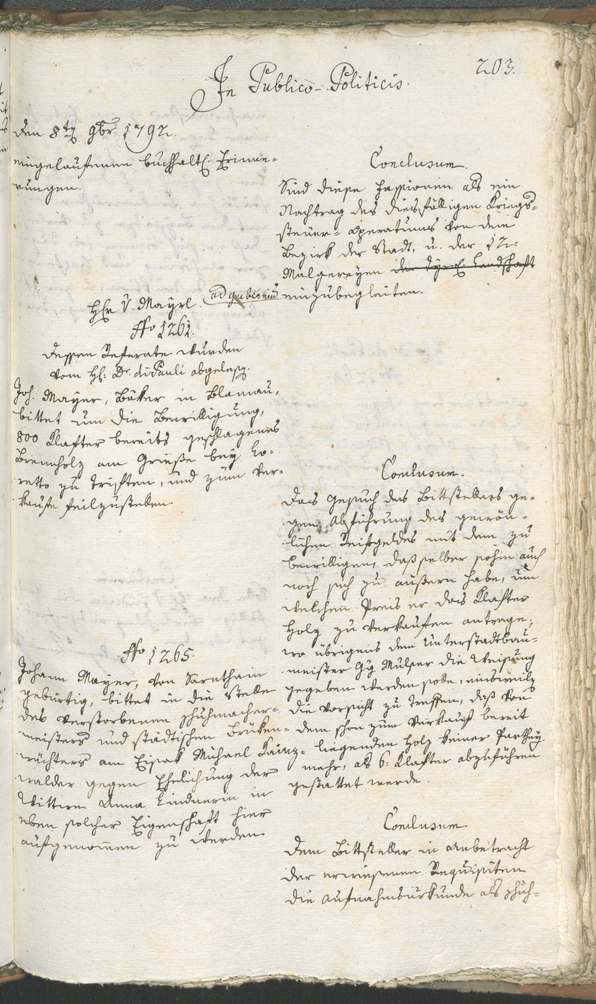 203.
In Publico-Politicis.
den 8ten 9br 1792.
eingelaufenen buchhaltl. Erinne-
rungen.
Conclusum.
Sind diese Fassionen als ein
Nachtrag des diesfälligen Kriegs-
steuer-Operatums von dem
Bezirk der Stadt, u. der 12.
Malgereyen in der Tyrol. Landschaft
einzubegleiten.
ad gubernium
Hr. V. Mayrl.
No 1261.
dessen Referate wurden
vom H. Dr. di Pauli abgelesen.
Joh. Mayer, Bäker in Blumau,
bittet um die Bewilligung,
800 Klafter bereits geschlagenes
Brennholz am Grieße bey Lo-
retto zu Triften, und zum Ver-
kaufe feilzustellen.
Conclusum.
Das Gesuch des Bittstellers ge-
gen Abführung des gewön-
lichen Reifgeldes mit dem zu
bewilligen, daß selber sohin auch
noch sich zu äußern habe, um
welchen Preis er das Klafter
Holz zu verkaufen antrage,
wo übrigens dem Unterstadtbau-
meister Gg Mulser die Weisung
gegeben werden solle, einsweilig
die Vorsicht zu treffen, daß von
dem schon zum Verkauf bereit
liegenden Holz keiner Parthey
mehr, als 6. Klafter abzuführen
gestattet werde.
No 1265.
Johann Mayer, von Sarnthein
gebürtig, bittet in die Stelle
des verstorbenen Schuhmacher-
meisters und städtischen Bruken-
wächters am Eisak Michael Kainz-
walder gegen Ehelichung der
Wittwe Anna Lindnerin in
eben solcher Eigenschaft hier
aufgenommen zu werden.
Conclusum.
Dem Bittsteller in Anbetracht
der erwiesenen Requisiten
die Aufnahmsurkunde als Schuh-